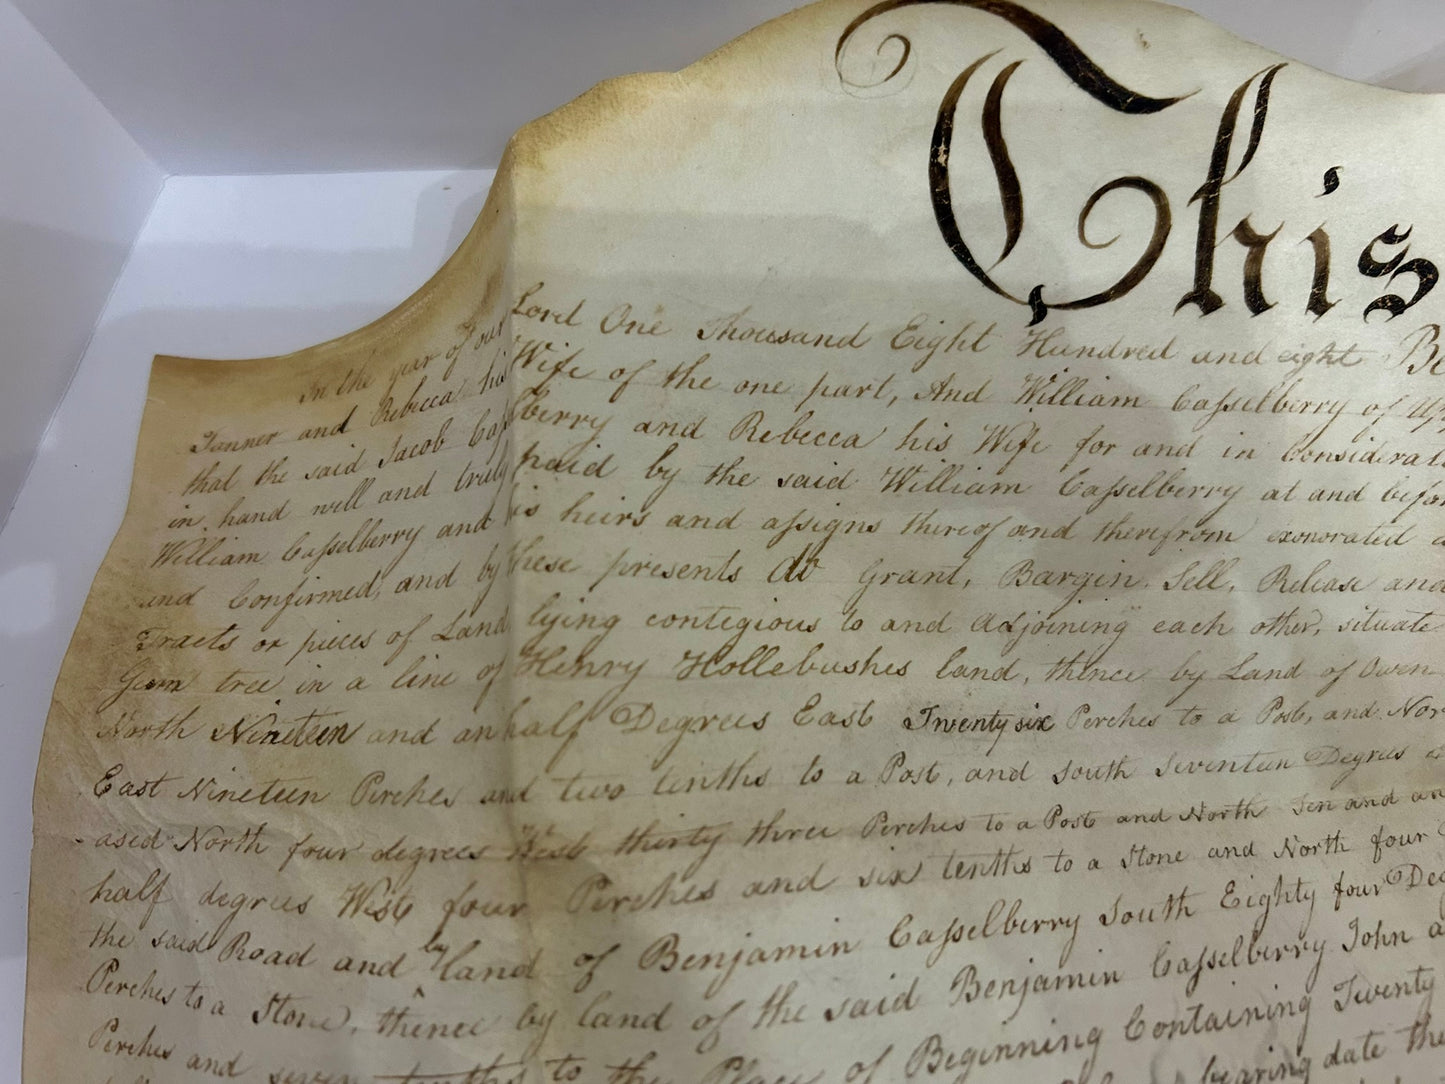 This
In the year of our Lord One Thousand Eight Hundred and eight Be
Tanner and Rebecca his Wife of the one part, And William Casselberry of Up
that the said Jacob Casselberry and Rebecca his Wife for and in Considerat
in hand well and truly paid by the said William Casselberry at and befor
William Casselberry and his heirs and assigns thereof and therefrom exonorated a
and Confirmed, and by these presents do Grant, Bargin, Sell, Release and
Tracts or pieces of Land lying contegious to and Adjoining each other, situate
Gum tree in a line of Henry Hollebushes land, thence by Land of Owen
North Nineteen and an half Degrees East Twenty six Perches to a Post, and Nor
East Nineteen Perches and two tenths to a Post, and South Seventeen Degrees a
ased North four degrees West thirty three Perches to a Post and North Ten and an
half degrees West four Perches and six tenths to a Stone and North four
the said Road and by land of Benjamin Casselberry South Eighty four Deg
Perches to a Stone, thence by land of the said Benjamin Casselberry John a
Perches and seven tenths to the Place of Beginning Containing Twenty
bearing date the